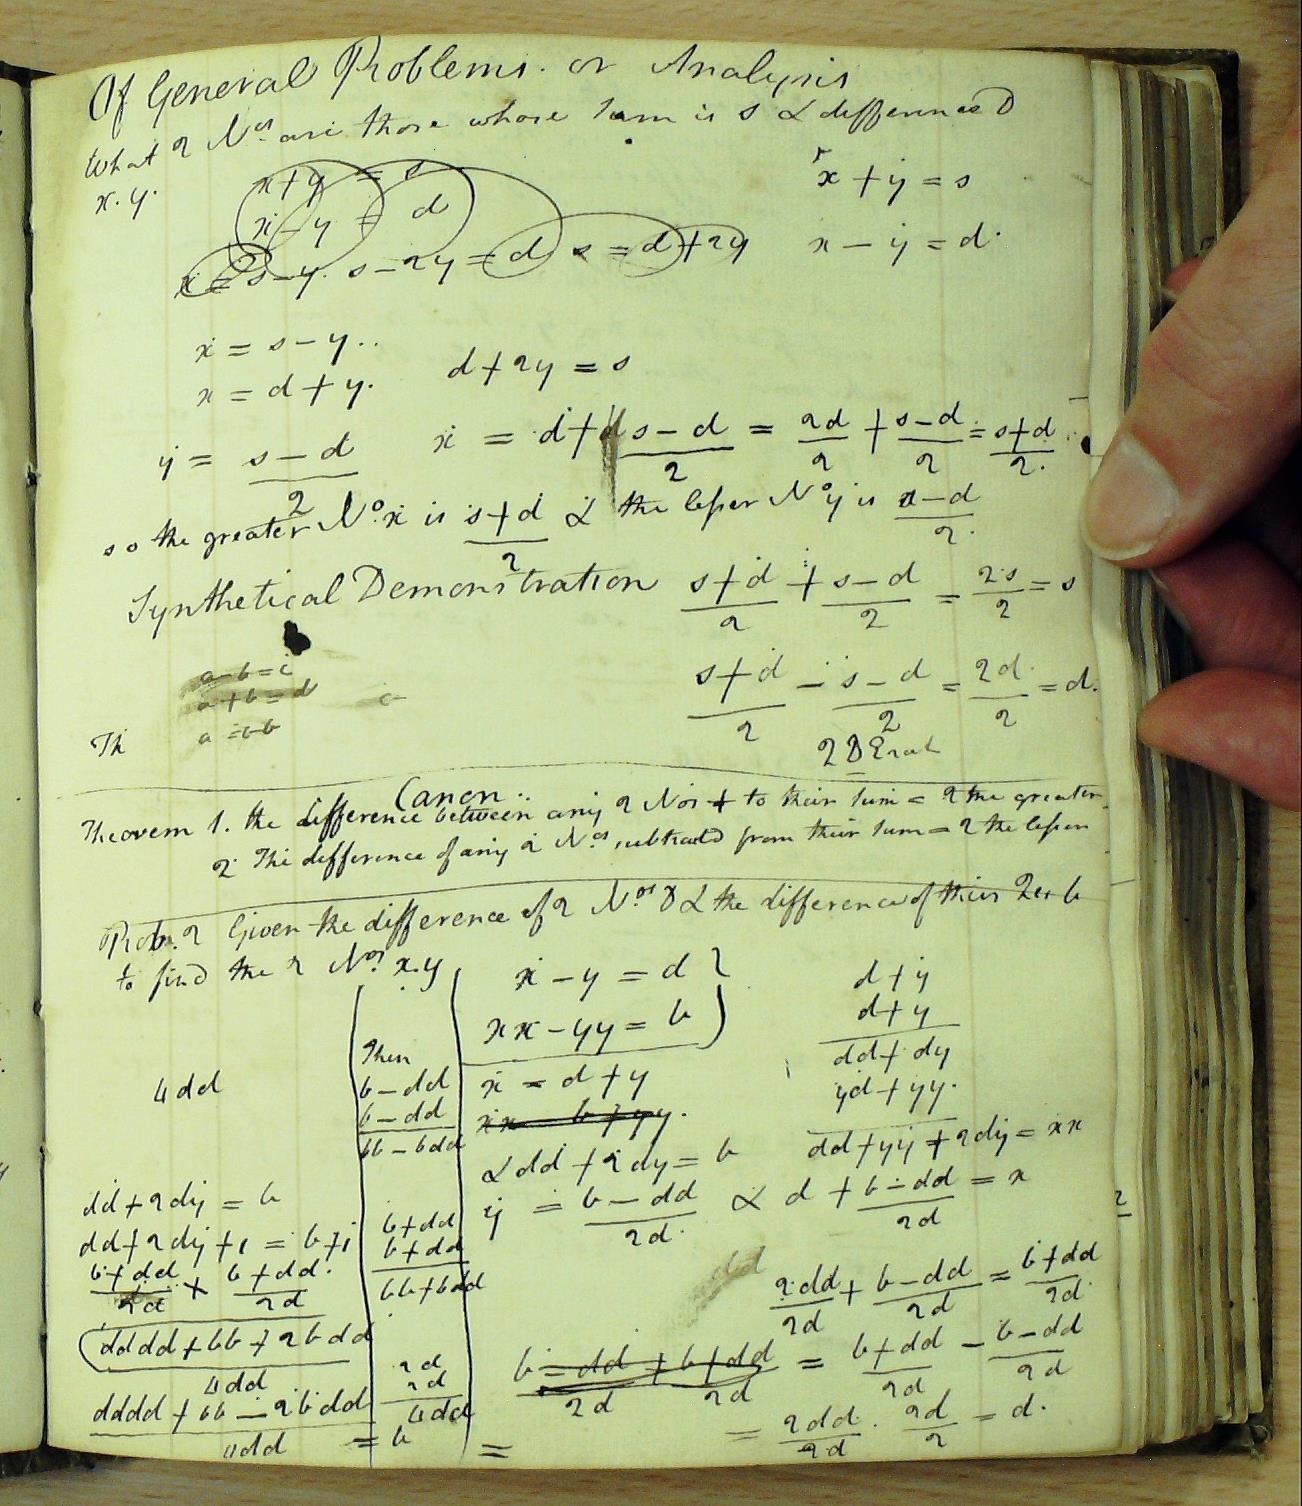 Of General Problems. or Analysis
What 2 Nos are those whose sum is s & difference D
x.y.
x+y = s
x+y = s
x-y = d
x-y = d.
x = s-y. s-2y = d s = d+2y
x = s-y..
x = d+y.
d+2y = s
y = s-d/2
x = d+ s-d/2 = 2d/2 + s-d/2 = s+d/2.
so the greater No. x is s+d/2 & the lesser No y is s-d/2.
Synthetical Demonstration s+d/2 + s-d/2 = 2s/2 = s
a-b=i
a+b=d
s+d/2 - s-d/2 = 2d/2 = d.
Th
2 D Erat
Canon..
Theorem 1. the difference between any 2 Nos + to their sum = 2 the greater.
2. The difference of any 2 Nos. subtracted from their sum = 2 the lesser
Prob. 2 Given the difference of 2 Nos D & the difference of their 2es b
to find the 2 Nos. x.y
x-y = d
xx-yy = b
d+y
d+y
dd+dy
yd+yy.
dd+yy+2dy = xx
Then
b-dd
b-dd
bb-bdd
4dd
x = d+y
xx = b+yy.
& dd+2dy = b
y = b-dd/2d. & d + b-dd/2d = x
dd+2dy = b
dd+2dy+1 = b+1
b+dd/2d × b+dd/2d
dddd+bb+2bdd/4dd
dddd+bb-2bdd/4dd = b
b+dd
b+dd
bb+bdd
2d
2d
4dd
dd
2dd/2d + b-dd/2d = b+dd/2d
b-dd/2d + b+dd/2d = b+dd/2d - b-dd/2d
=
= 2dd/2d . 2d/2 = d.